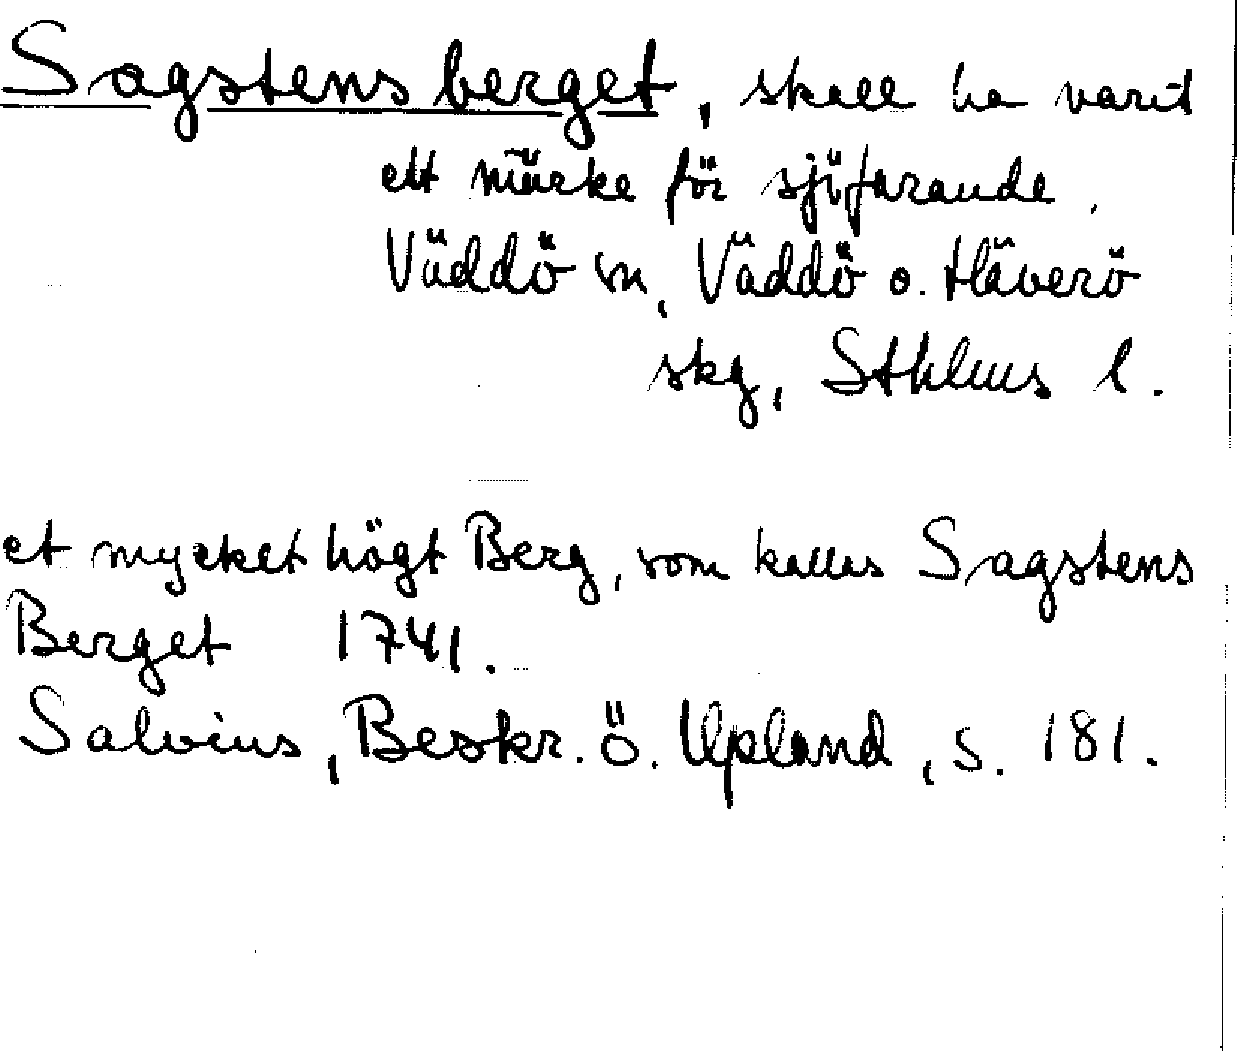 Sagstensberget, skall ha varit
ett märke för sjöfarande.
Väddö sn, Väddö o. Häverö
skg, Sthlms l.
et mycket högt Berg, som kallas Sagstens
Berget 1741.
Salvius, Beskr. Ö. Upland, s. 181.